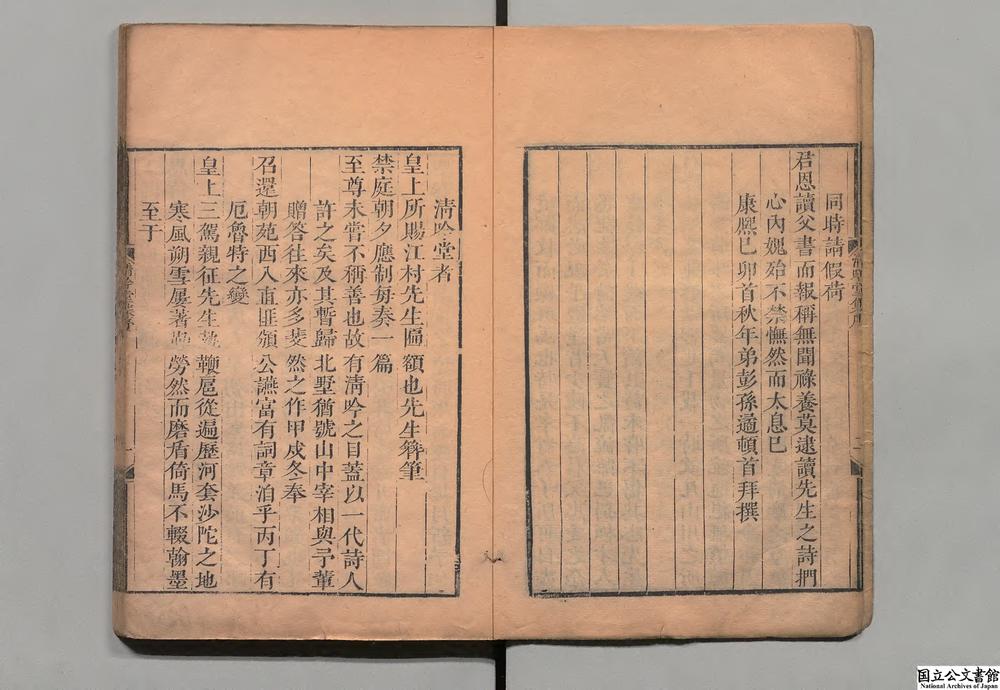 同時請假荷
君恩讀父書而報稱無聞祿養莫逮讀先生之詩捫
心內媿殆不禁憮然而太息已
康熙己卯首秋年弟彭孫遹頓首拜撰
清吟堂者
皇上所賜江村先生匾額也先生簪筆
禁庭朝夕應制每奏一篇
至尊未嘗不稱善也故有清吟之目蓋以一代詩人
許之矣及其暫歸北墅猶號山中宰相與予輩
贈答往來亦多斐然之作甲戌冬奉
召還朝苑西入直匪頒公讌富有詞章洎乎丙丁有
厄魯特之變
皇上三駕親征先生執鞭扈從遍歷河套沙陀之地
寒風朔雪屢著勞然而磨盾倚馬不輟翰墨
至于
国立公文書館
National Archives of Japan